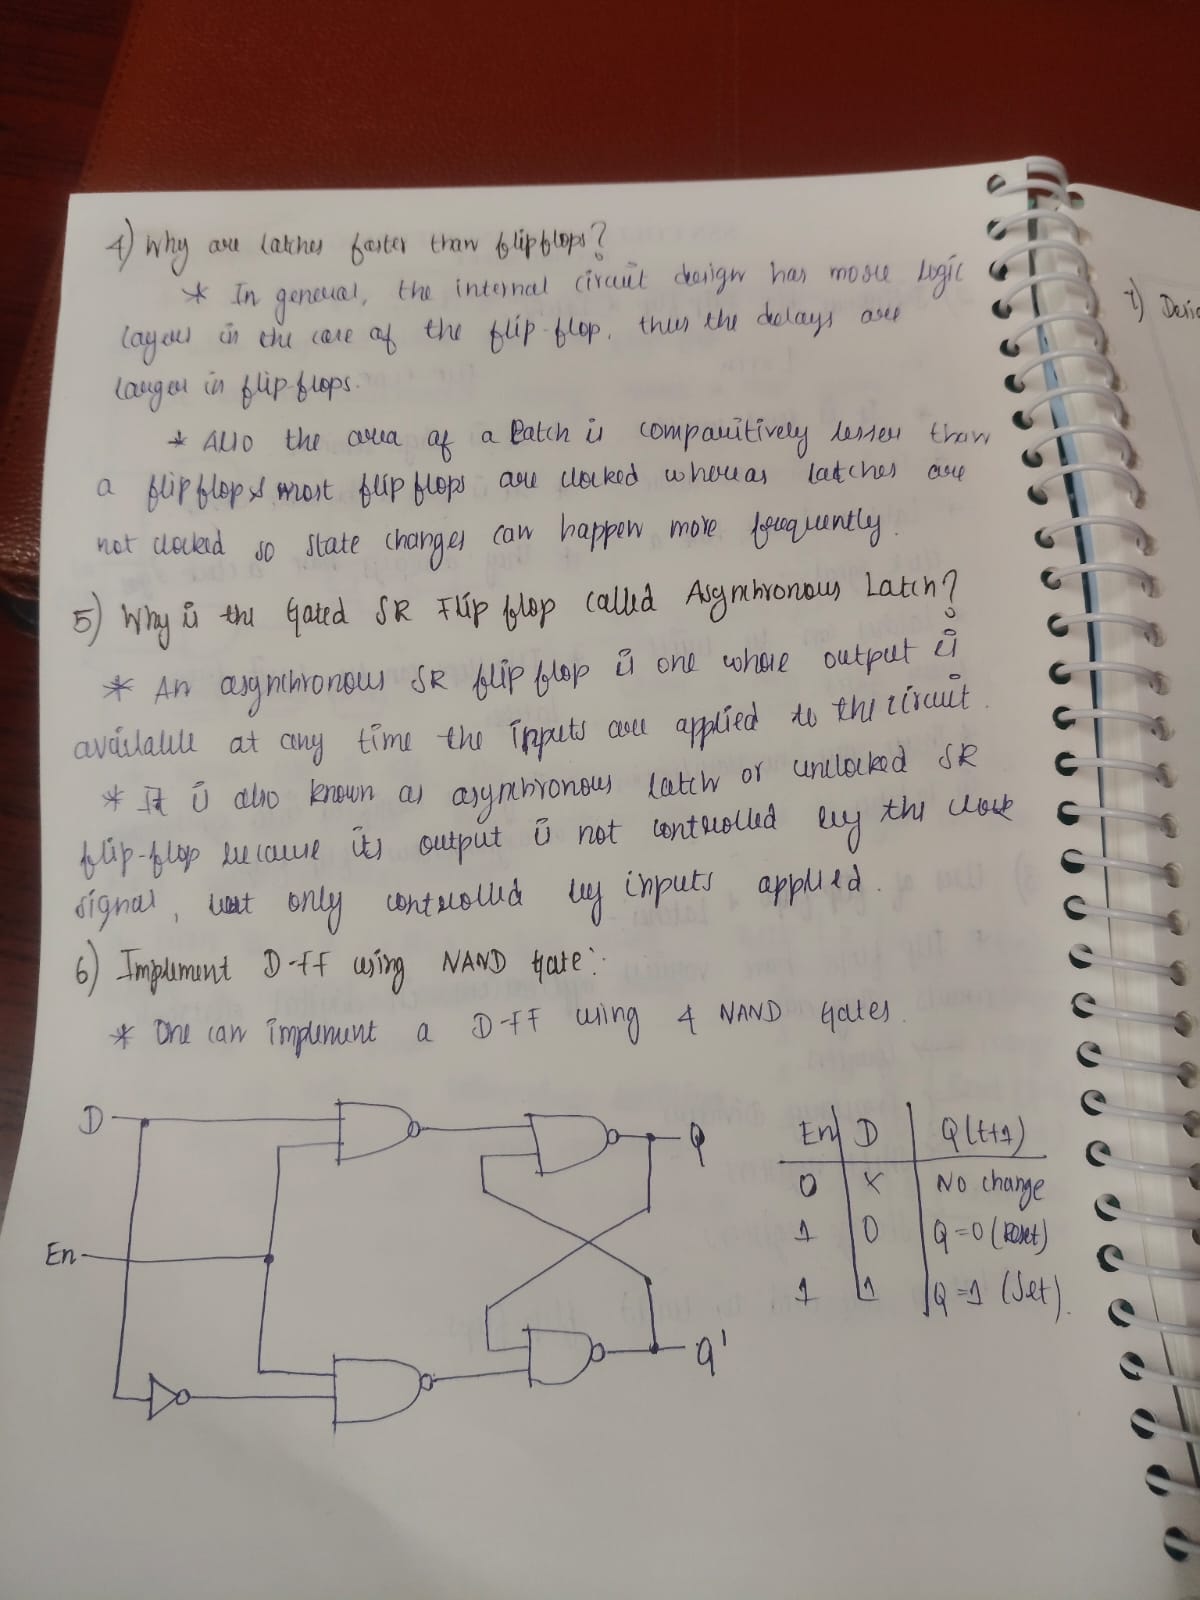 4) Why are latches faster than flipflops?
* In general, the internal circuit design has more logic
layers in the case of the flip-flop, thus the delays are
larger in flip-flops.
* Also the area of a Latch is comparitively lesser than
a flipflop & most flipflops are clocked whereas latches are
not clocked so state changes can happen more frequently.
5) Why is the Gated SR Flip flop called Asynchronous Latch?
* An asynchronous SR flip flop is one whose output is
available at any time the inputs are applied to the circuit.
* It is also known as asynchronous latch or unclocked SR
flip-flop because its output is not controlled by the clock
signal, but only controlled by inputs applied.
6) Implement D-FF using NAND Gate:-
* One can implement a D-FF using 4 NAND Gates.
D
Q
En
Q'
En D Q(t+1)
0 X No change
1 0 Q=0 (Reset)
1 1 Q=1 (Set).
7)